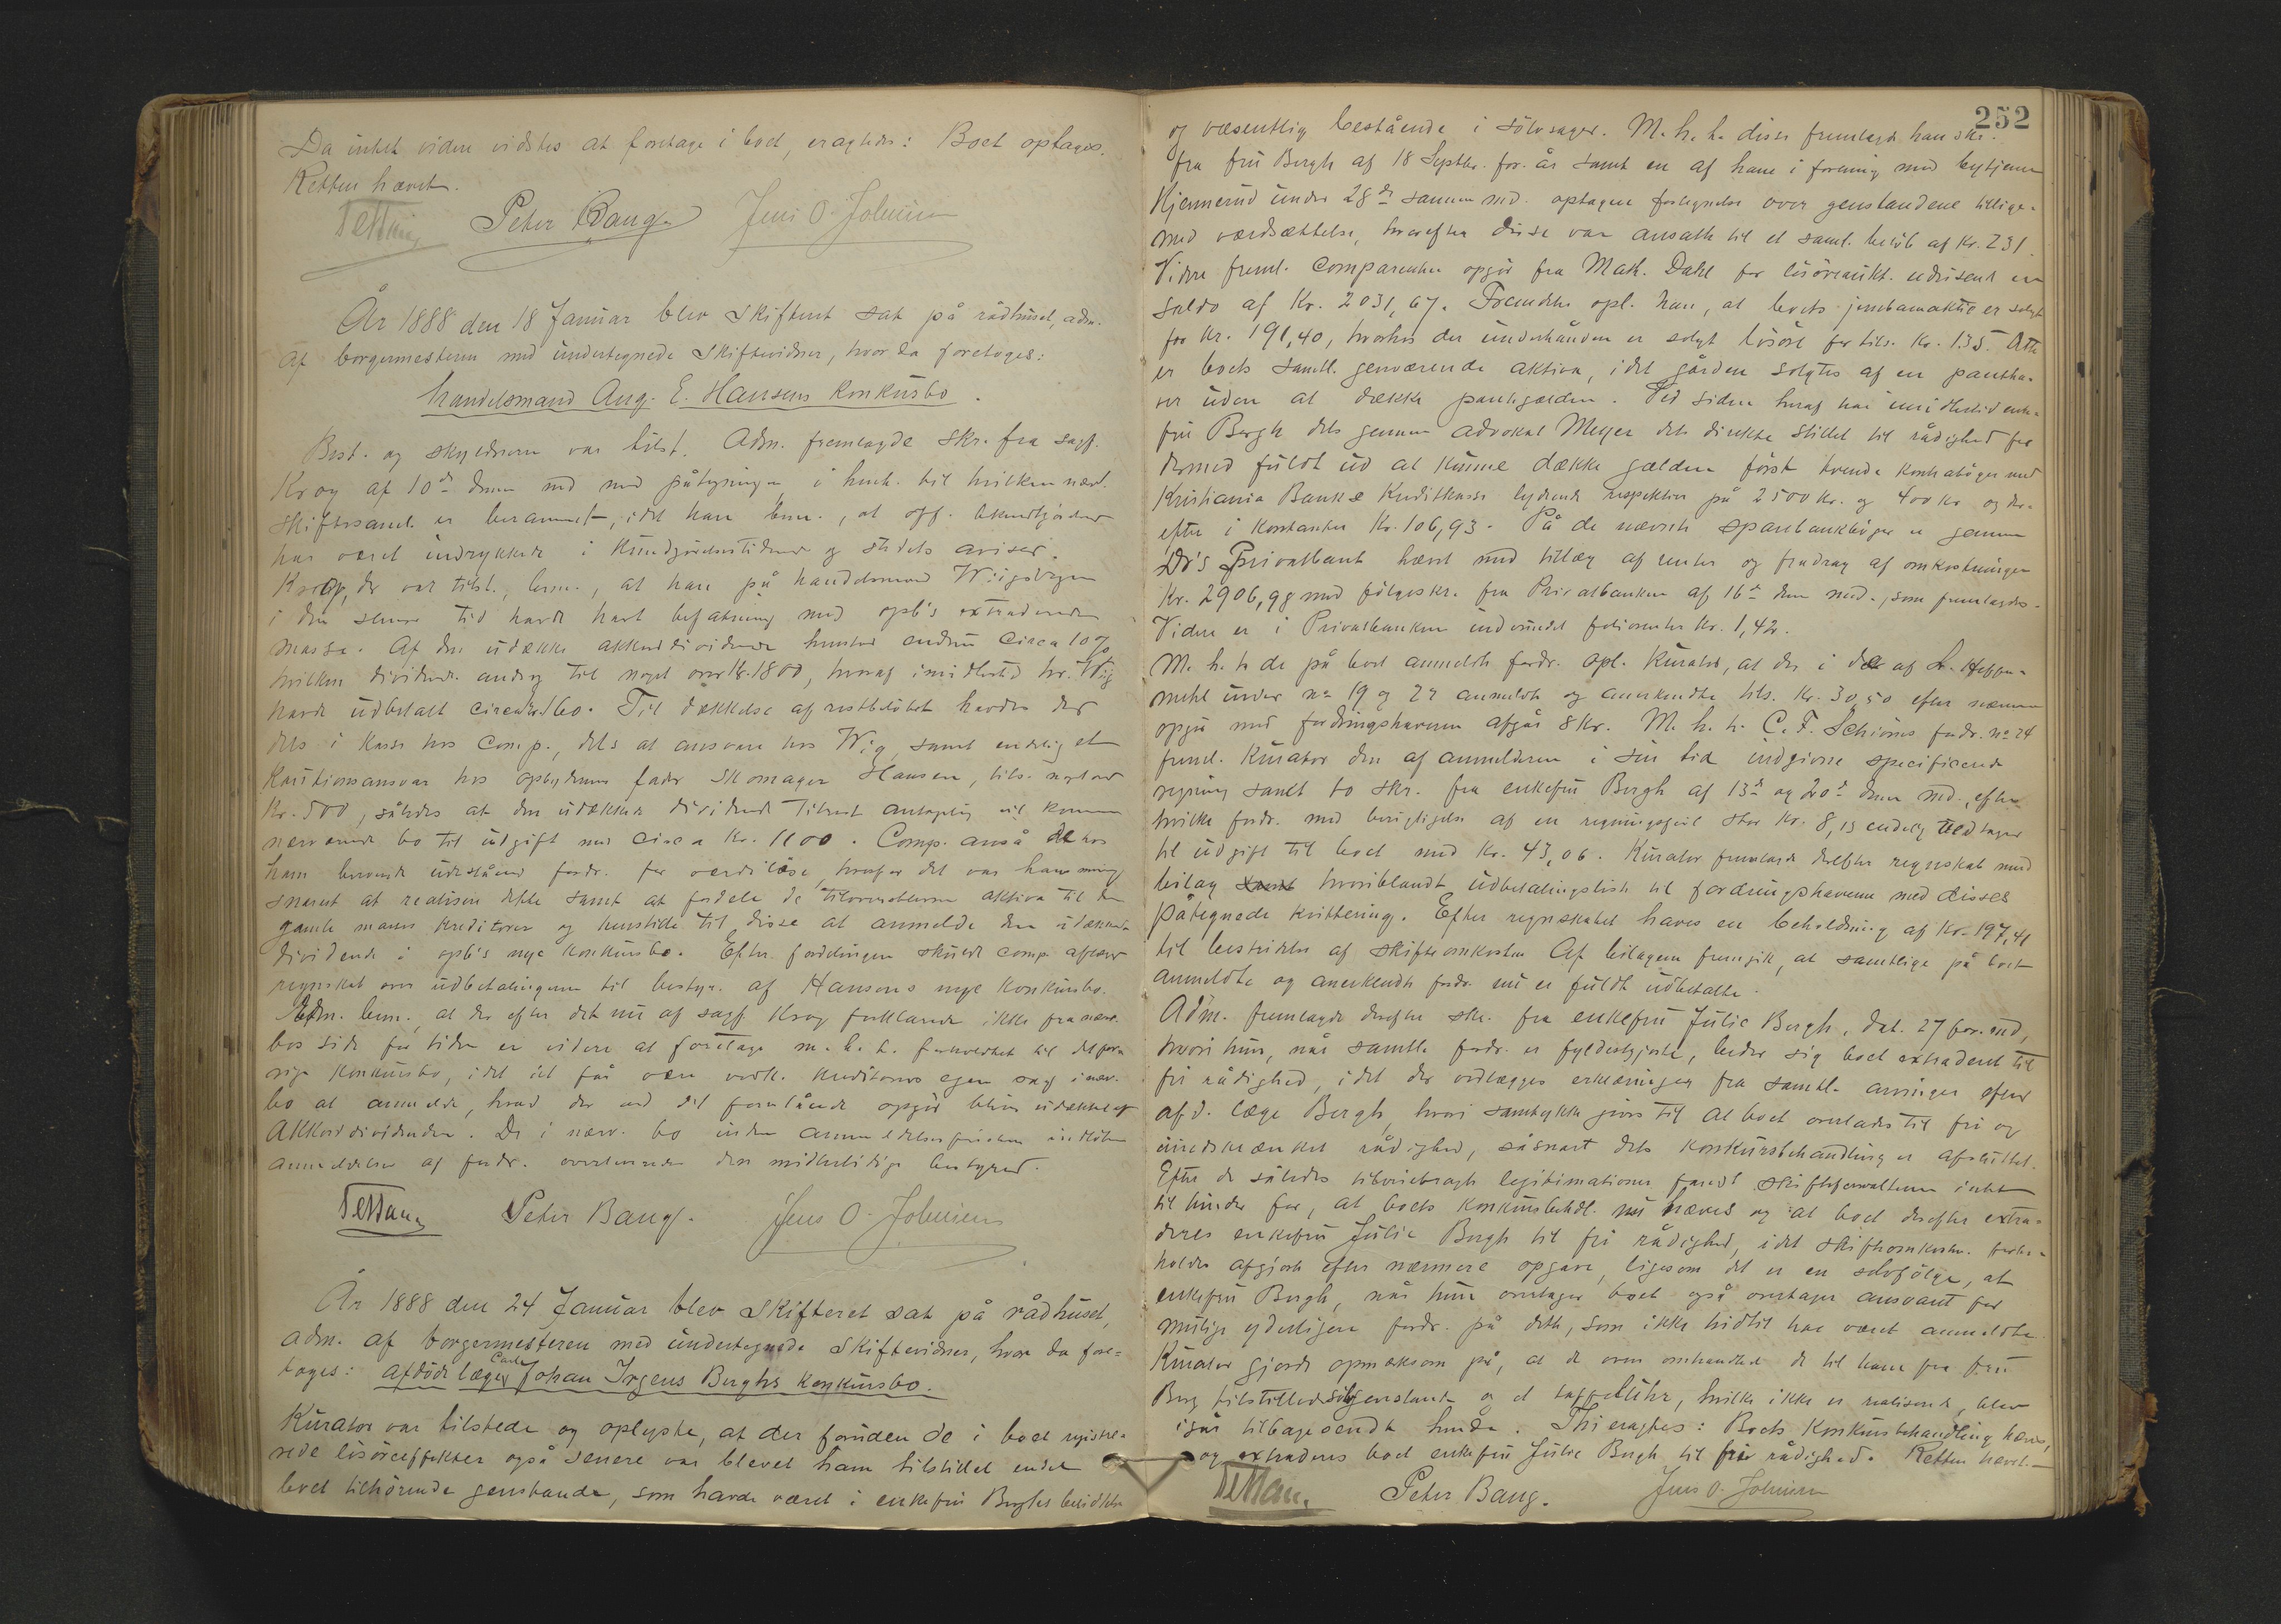 Da intet videre vidstes at foretage i boet, eragtedes: Boet optages.
Retten hævet.
Peter Bang Jens O. Johnsen
År 1888 den 18 Januar blev Skifteret sat på rådhuset, adm.
af borgermesteren med undertegnede Skiftevidner, hvor da foretoges:
handelsmand Aug. E. Hansens konkursbo.
Best. og skyldneren var tilst. Adm. fremlagde skr. fra sagf.
Krog af 10de dennes md med påtegninger i henh. til hvilken nærv.
skiftesaml. er berammet, idet han bem., at off. bekendtgjørelse
har været indrykket i Kundgjørelsestidende og stedets aviser.
Krog, der var tilst., bem., at han på handelsmand Wiigs vegne
i den senere tid havde havt befatning med opb's extraderede
masse. Af den udækkede akkorddividende henstod endnu circa 10%
hvilken dividende androg til noget over Kr. 1800, hvoraf imidlertid hr. Wiig
havde udbetalt circa 60. Til dækkelse af restbeløbet havdes der
dels i kasse hos comp., dels at ansvare hos Wiig samt endelig et
kautionsansvar hos opbyderens fader Skomager Hansen, tils. noget over
Kr. 500, således at den udækkede dividende tilrest antagelig vil komme
nærværende bo til udgift med circa Kr. 1100. Comp. anså de hos
ham beroende udestående fordr. for værdiløse, hvorfor det var hans mening
snarest at realisere dette samt at fordele de tiloversblevne aktiva til den
gamle masses kreditorer og henstille til disse at anmelde den udækkede
dividende i opb's nye konkursbo. Efter fordelingen skulde comp. aflevere
regnskab over udbetalingerne til bestyr. af Hansens nye konkursbo.
Adm. bem., at der efter det nu af sagf. Krog forklarede ikke fra nærv.
bos side for tiden er videre at foretage m. h. t. forholdet til det forr
rige konkursbo, idet det får være vedk. kreditorers egen sag i nærv.
bo at anmelde, hvad der ved det forestående opgjør bliver udækket af
Akkorddividenden. De i nærv. bo inden anmeldelsesfristen indløbne
anmeldelser af fordr. overleveredes den midlertidige bestyrer.
Peter Bang. Jens O. Johnsen
År 1888 den 24 Januar blev Skifteret sat på rådhuset,
adm. af borgermesteren med undertegnede Skiftevidner, hvor da fore=
toges: afdøde læge Carl Johan Irgens Berghs konkursbo.
Kurator var tilstede og oplyste, at der foruden de i boet registre=
rede løsøreeffekter også senere var blevet ham tilstillet endel
boet tilhørende genstande, som havde været i enkefru Berghs besiddelse
252
og væsentlig bestående i sølvsager. M. h. t. disse fremlagde han skr.
fra fru Bergh af 18 Septbr. for. år samt en af hane i forening med bytjener
Kjennerud under 28de samme md. optagen fortegnelse over genstandene tillige=
med værdsættelse, hvorefter disse var ansatte til et saml. beløb af Kr. 231.
Videre freml. Comparenten opgjør fra Mæk. Dahl for løsøreaukt. udvisende en
saldo af Kr. 2031,67. Fremdeles opl. han, at boets jernbaneaktie er solgt
for Kr. 191,40, hvorhos der underhånden er solgt løsøre for tils. Kr. 135. Dette
er boets samtl. genværende aktiva, idet gården solgtes af en pantha=
ver uden at dække pantegælden. Ved siden heraf har imidlertid enke=
fru Bergh dels gennem advokat Meyer dels direkte stillet til rådighed for
dermed fuldt ud at kunne dække gælden først tvende kontrabøger med
Kristiania Bank & Kreditkasse lydende respektive på 2500 kr. og 400 kr og der=
efter i kontanter Kr. 106,93. På de nævnte sparebankbøger er gennem
Dr's Privatbank hævet med tillæg af renter og fradrag af omkostninger
Kr. 2906,98 med følgeskr. fra Privatbanken af 16de dennes md., som fremlagdes.
Videre er i Privatbanken indvundet foliorenter Kr. 1,42.
M. h. t. de på boet anmeldte fordr. opl. kurator, at der i de af
under no 19 og 22 anmeldte og anerkendte tils. Kr. 30,50 efter nærmere
opgjør med fordringshaveren afgår 8 Kr. M. h. t. C. F. Schiøns fordr. no 24
freml. kurator den af anmelderen i sin tid indgivne specificerede
regning samt to skr. fra enkefru Bergh af 13de og 20de dennes md., efter
hvilke fordr. med berigtigelse af en regningsfeil stor Kr. 8,15 endelig
til udgift til boet med Kr. 43,06. Kurator fremlagde derefter regnskab med
bilag hvoriblandt udbetalingsliste til fordringshaverne med disses
påtegnede kvittering. Efter regnskabet haves en beholdning af Kr. 197,41
til bestridelse af skifteomkostn. Af bilagene fremgik, at samtlige på boet
anmeldte og anerkendte fordr. nu er fuldt udbetalte.
Adm. fremlagde derefter skr. fra enkefru Julie Bergh, dat. 27 for. md,
hvori hun, når samtl. fordr. er fyldestgjorte, beder sig boet extraderet til
fri rådighed, idet der vedlægges erklæringer fra samtl. arvinger efter
afd. læge Bergh, hvori samtykke gives til at boet overlades til fri og
uindskrænket rådighed, såsnart dets konkursbehandling er afsluttet.
Efter de således tilveiebragte legitimationer fandt skifteforvalteren intet
til hinder for, at boets konkursbehdl. nu hæves og at boet derefter extra=
deres enkefru Julie Bergh til fri rådighed, idet skifteomkostn. forbe=
holdes afgjort efter nærmere opgave, ligesom det er en selvfølge, at
enkefru Bergh, når hun overtager boet også overtager ansvaret for
mulige yderligere fordr. på dette, som ikke hidtil har været anmeldte
Kurator gjorde opmærksom på, at de oven omhandlede de til ham fra fru
Berg tilstillede sølvgenstande og et taffeluhr, hvilke ikke er realiserede, blev
igår tilbagesendt hende. Thi eragtes: Boets konkursbehandling hæves,
og extraderes boet enkefru Julie Bergh til fri rådighed. Retten hævet.
Peter Bang. Jens O. Johnsen